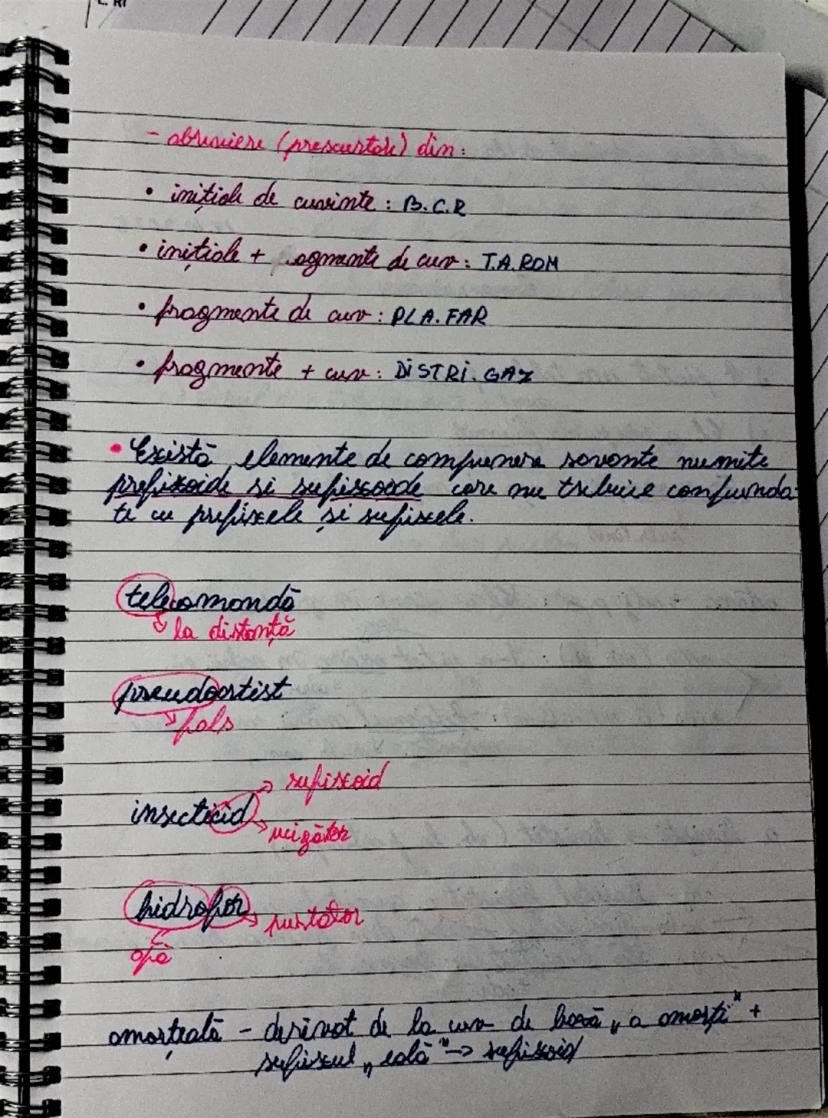 - abreviere (prescurtare) din:
• inițiale de cuvinte: B.C.R
• inițiale + agmente de cuv: T.A.ROM
• fragmente de cuv: PLA.FAR
• fragmente + cuv: DISTRI.GAZ
• Există elemente de compunere savante numite
prefixoide si sufixoide care nu trebuie confunda-
te cu prefixele și sufixele.
telecomandă
la distanță
pseudoartist
fals
sufixoid
insecticid
ucigător
hidrofor
purtator
apă
amorțeală - derivat de la cuv de bază „a amorți" +
sufixul „eală" -> sufixoid